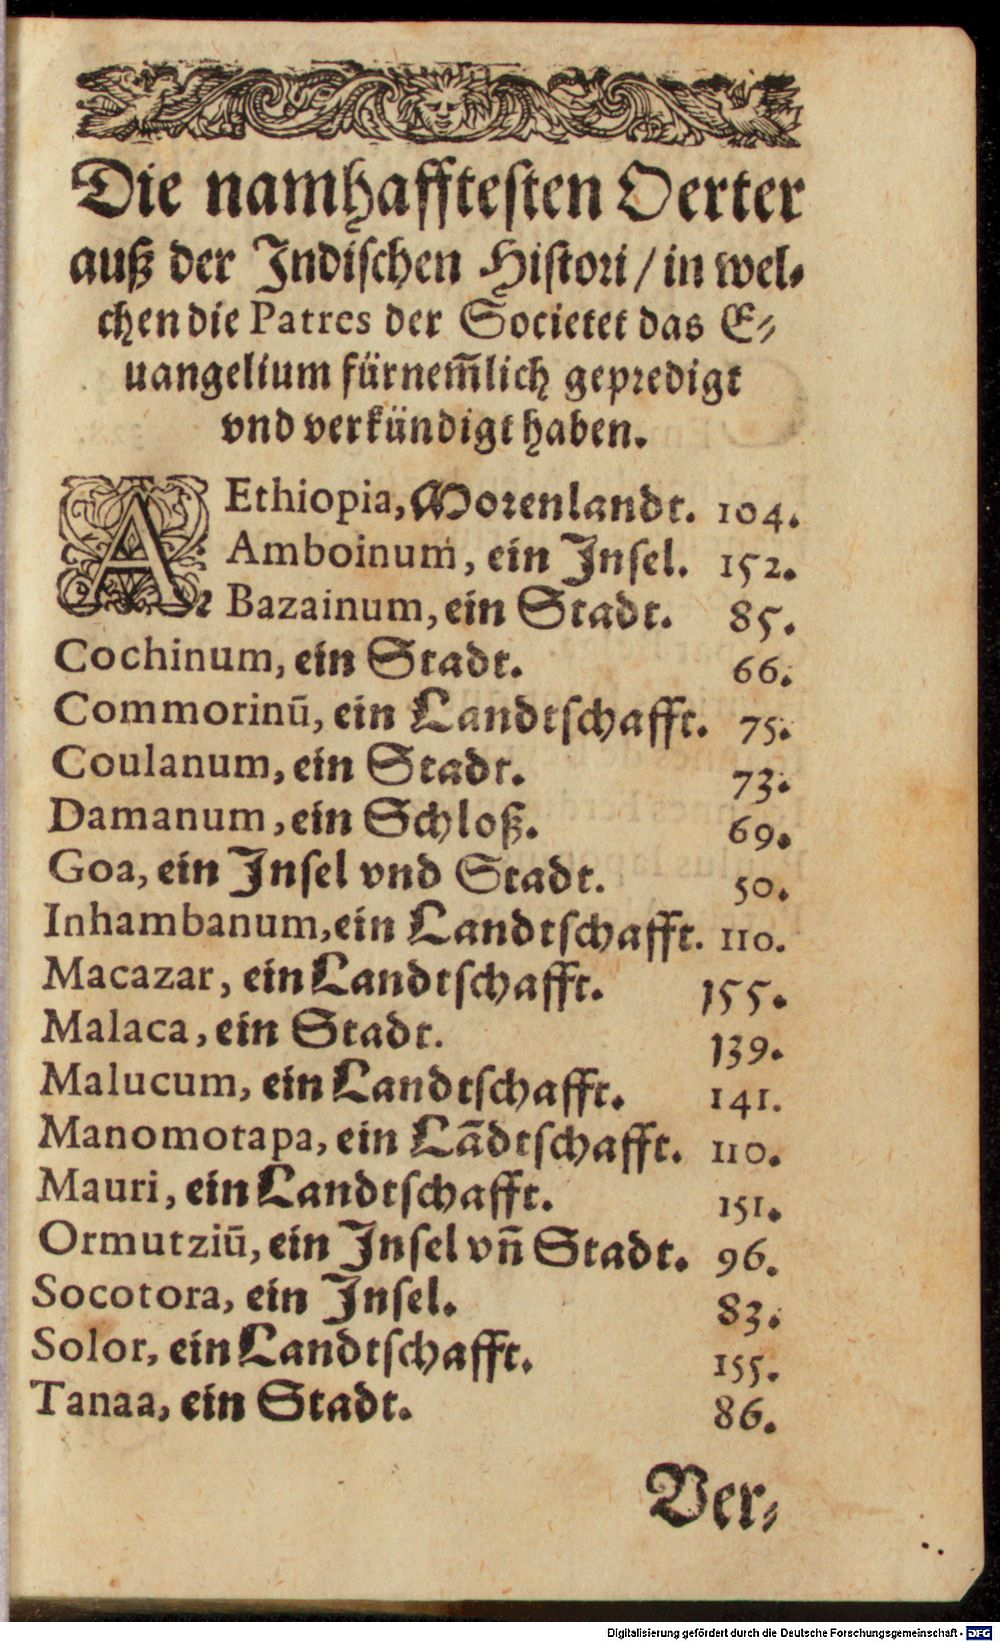 Die namhafftesten Oerter
auß der Indischen Histori / in wel-
chen die Patres der Societet das E-
uangelium fürnem̃lich gepredigt
vnd verkündigt haben.
AEthiopia, Morenlandt. 104.
Amboinum, ein Insel. 152.
Bazainum, ein Stadt. 85.
Cochinum, ein Stadt. 66.
Commorinū, ein Landtschafft. 75.
Coulanum, ein Stadt. 73.
Damanum, ein Schloß. 69.
Goa, ein Insel vnd Stadt. 50.
Inhambanum, ein Landtschafft. 110.
Macazar, ein Landtschafft. 155.
Malaca, ein Stadt. 139.
Malucum, ein Landtschafft. 141.
Manomotapa, ein Lādtschafft. 110.
Mauri, ein Landtschafft. 151.
Ormutziū, ein Insel vn̄ Stadt. 96.
Socotora, ein Insel. 83.
Solor, ein Landtschafft. 155.
Tanaa, ein Stadt. 86.
Ver-
Digitalisierung gefördert durch die Deutsche Forschungsgemeinschaft - DFG